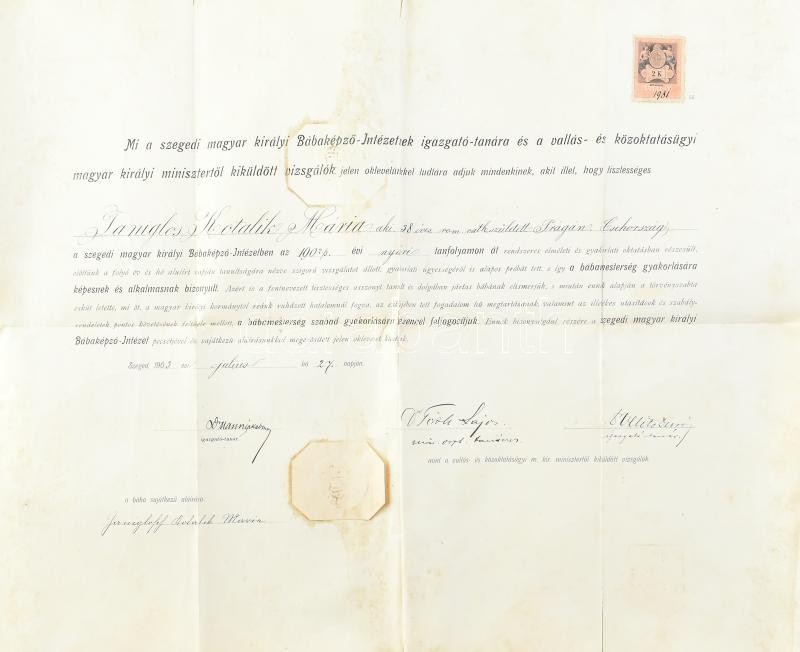 2 K
1931
Mi a szegedi magyar királyi Bábaképző-Intézetnek igazgató-tanára és a vallás- és közoktatásügyi
magyar királyi minisztertől kiküldött vizsgálók jelen oklevelünkkel tudtára adjuk mindenkinek, akit illet, hogy tisztességes
Kotalik Mária 38 éves rom. cath. született Prágán Csehország
a szegedi magyar királyi Bábaképző-Intézetben az 1902/3. évi nyári tanfolyamon át rendszeres elméleti és gyakorlati oktatásban részesült,
előttünk a folyó év és hó alulírt napján tanultságára nézve szigorú vizsgálatot állott, gyakorlati ügyességéről is alapos próbát tett, s így a bábamesterség gyakorlására
képesnek és alkalmasnak bizonyult. Azért is a fentnevezett tisztességes asszonyt tanult és dolgában jártas bábának elismerjük, s miután ennek alapján a törvényszabta
esküt letette, mi őt, a magyar királyi kormánytól reánk ruházott hatalomnál fogva, az esküjében tett fogadalom hű megtartásának, valamint az illetékes utasítások és szabály-
rendeletek pontos követésének feltétele mellett, a bábamesterség szabad gyakorlására ezennel feljogosítjuk. Ennek bizonyságául részére a szegedi magyar királyi
Bábaképző-Intézet pecsétjével és sajátkezű aláírásunkkal megerősített jelen oklevelet kiadtuk.
Szeged, 1903 évi julius hó 27 napján.
Dr Mann Jakab
igazgató-tanár.
Dr Tóth Lajos
min. oszt. tanácsos
igazgató-tanár
mint a vallás- és közoktatásügyi m. kir. minisztertől kiküldött vizsgálók.
a bába sajátkezű aláírása
Kotalik Maria